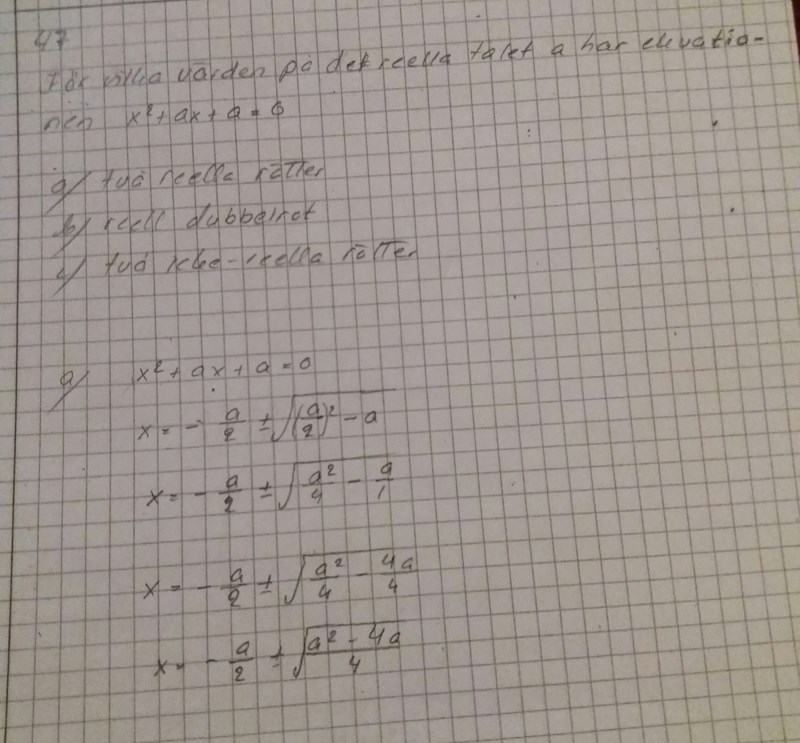 47
För vilka värden på det reella talet a har ekvatio-
nen x² + ax + a = 0
a) två reella rötter
b) reell dubbelrot
c) två icke-reella rötter
a) x² + ax + a = 0
x = - a/2 ± √((a/2)² - a)
x = - a/2 ± √(a²/4 - a/1)
x = - a/2 ± √(a²/4 - 4a/4)
x = - a/2 ± √((a² - 4a)/4)